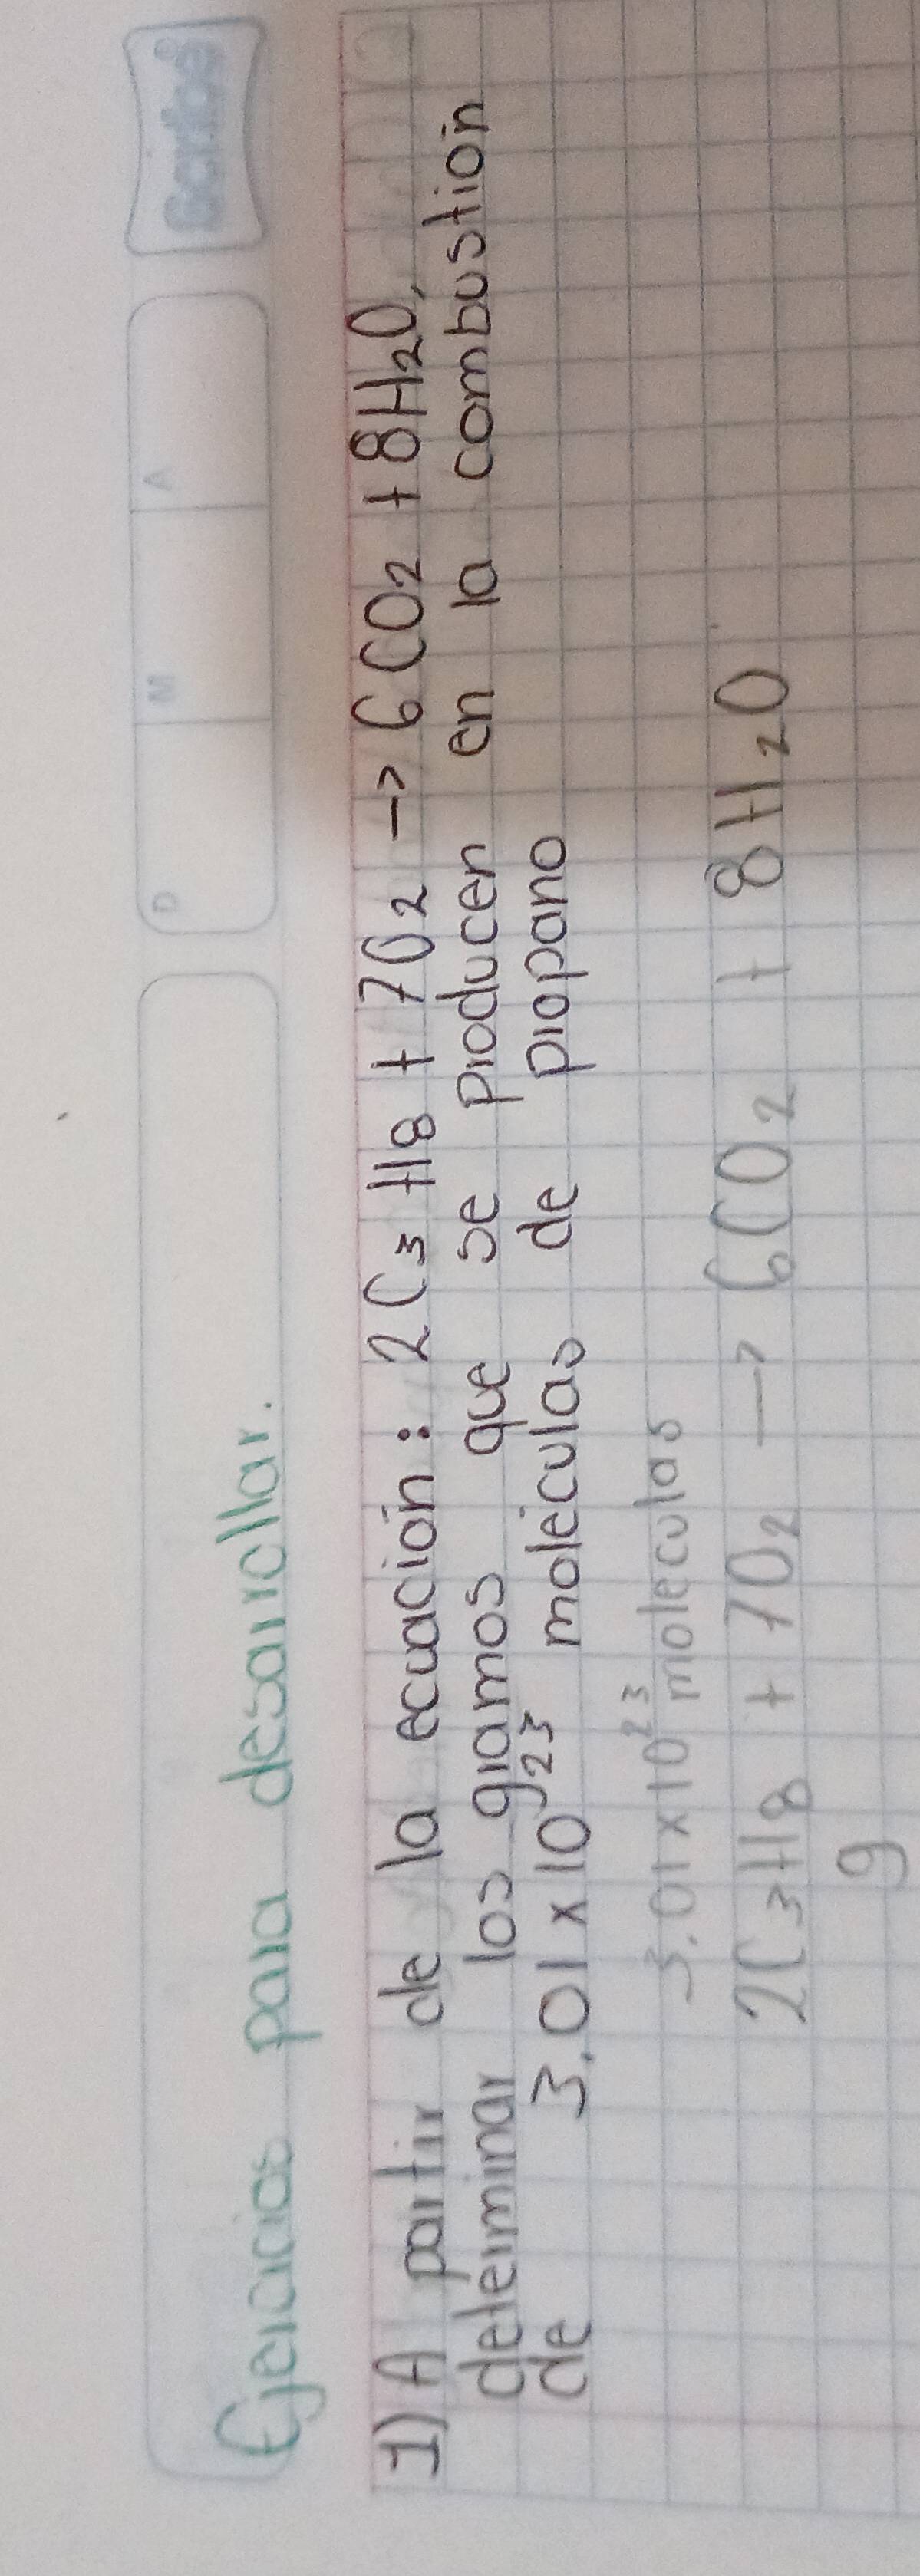 Scribe
D M A
Ejercicios para desarrollar.
1) A partir de la ecuación: 2C₃H8 + 7O₂ -> 6CO₂ + 8H₂O,
determinar los gramos que se producen en la combustion
de 3.01x10²³ moleculas de propano
3.01x10²³ moleculas
2C₃H8 + 7O₂ -> 6CO₂ + 8H₂O
g